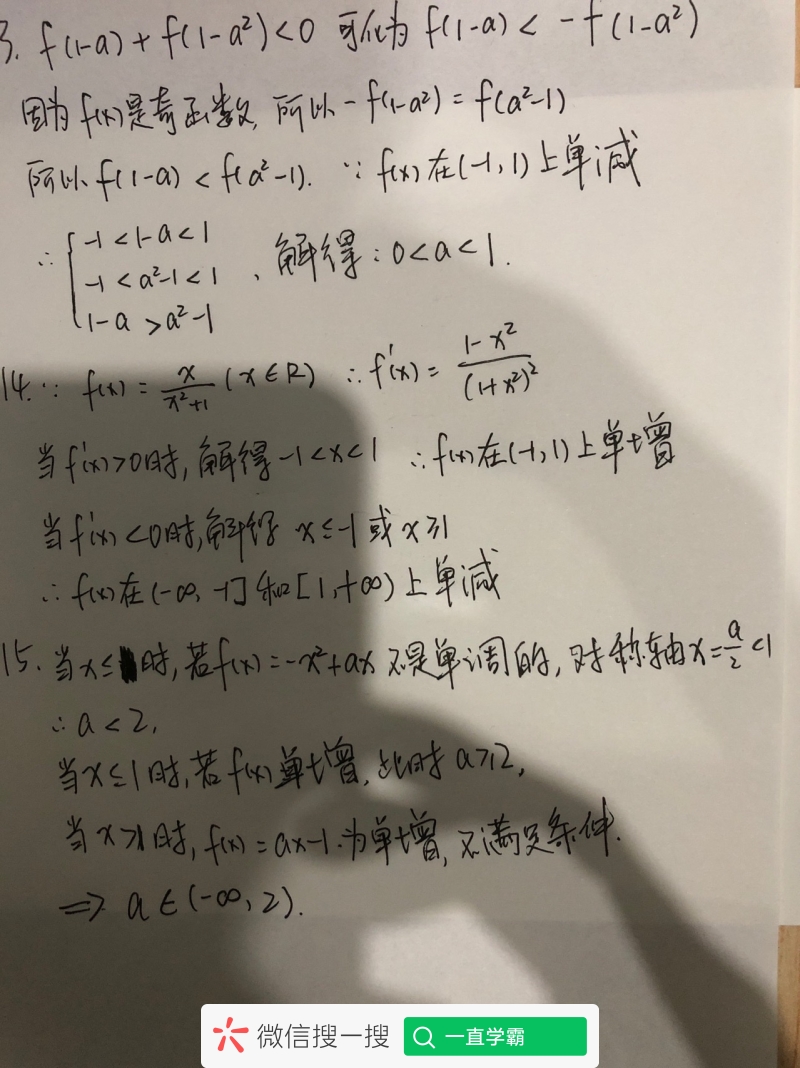 3. f(1-a)+f(1-a²)<0 可化为 f(1-a) < -f(1-a²)
因为f(x)是奇函数, 所以-f(1-a²)=f(a²-1)
所以f(1-a)<f(a²-1). ∵ f(x)在(-1,1)上单减
∴ { -1<1-a<1
-1<a²-1<1 、解得:0<a<1.
1-a>a²-1
14.∵ f(x)=x/(x²+1) (x∈R) ∴f'(x)=(1-x²)/(1+x²)²
当f'(x)>0时,解得-1<x<1 ∴f(x)在(-1,1)上单增
当f'(x)<0时,解得 x≤-1或x≥1
∴f(x)在(-∞,-1]和[1,+∞)上单减
15.当x≤1时,若f(x)=-x²+ax不是单调的,对称轴x=a/2<1
∴a<2,
当x≤1时,若f(x)单增,此时a≥2,
当x>1时,f(x)=ax-1.为单增,不满足条件.
⇒ a∈(-∞,2).
微信搜一搜 一直学霸